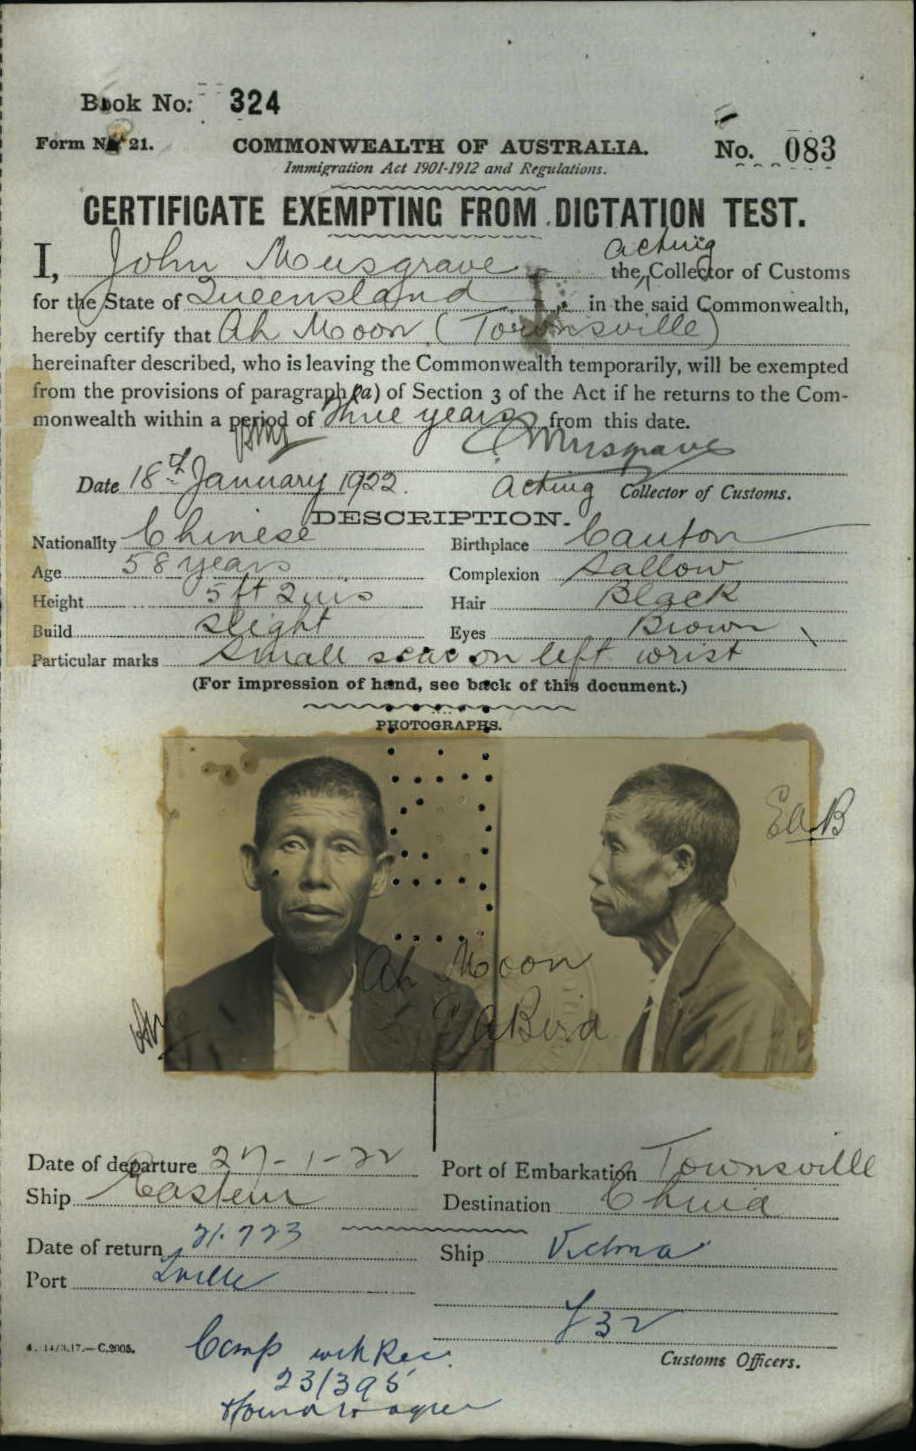 Book No: 324
Form No 21. COMMONWEALTH OF AUSTRALIA. No. 083
Immigration Act 1901-1912 and Regulations.
CERTIFICATE EXEMPTING FROM DICTATION TEST.
acting
I, John Musgrave the Collector of Customs
for the State of Queensland in the said Commonwealth,
hereby certify that Ah Moon (Townsville)
hereinafter described, who is leaving the Commonwealth temporarily, will be exempted
from the provisions of paragraph (a) of Section 3 of the Act if he returns to the Com-
monwealth within a period of three years from this date.
Musgrave
Date 18th January 1922. Acting Collector of Customs.
DESCRIPTION.
Nationality Chinese Birthplace Canton
Age 58 years Complexion Sallow
Height 5 ft 2 ins Hair Black
Build Slight Eyes Brown
Particular marks Small scar on left wrist
(For impression of hand, see back of this document.)
PHOTOGRAPHS.
EAB
Ah Moon
EABird
Date of departure 27-1-22 Port of Embarkation Townsville
Ship Eastern Destination China
Date of return 21.7.23 Ship Victoria
Port Tville
Comp with Rec.
23/395
C.2005.
Customs Officers.